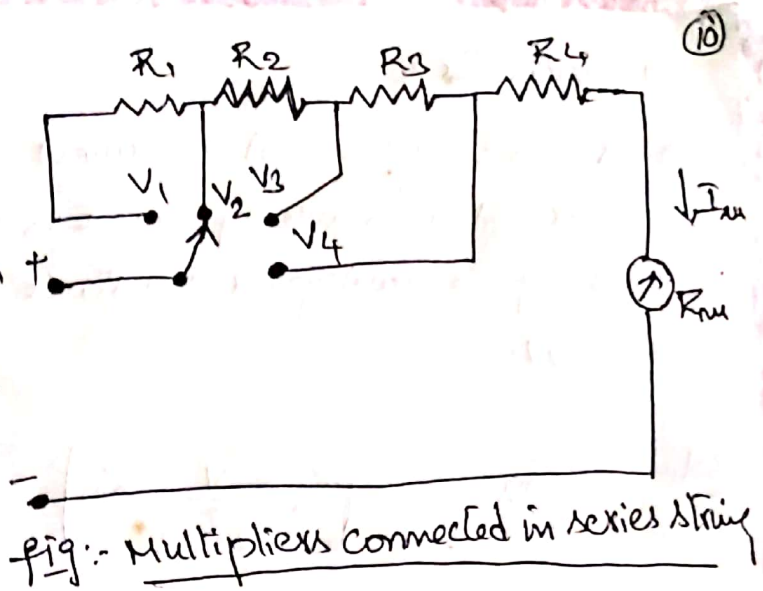 10
R1 R2 R3 R4
V1 V2 V3
V4
Im
+
Rm
-
fig:- Multipliers connected in series string